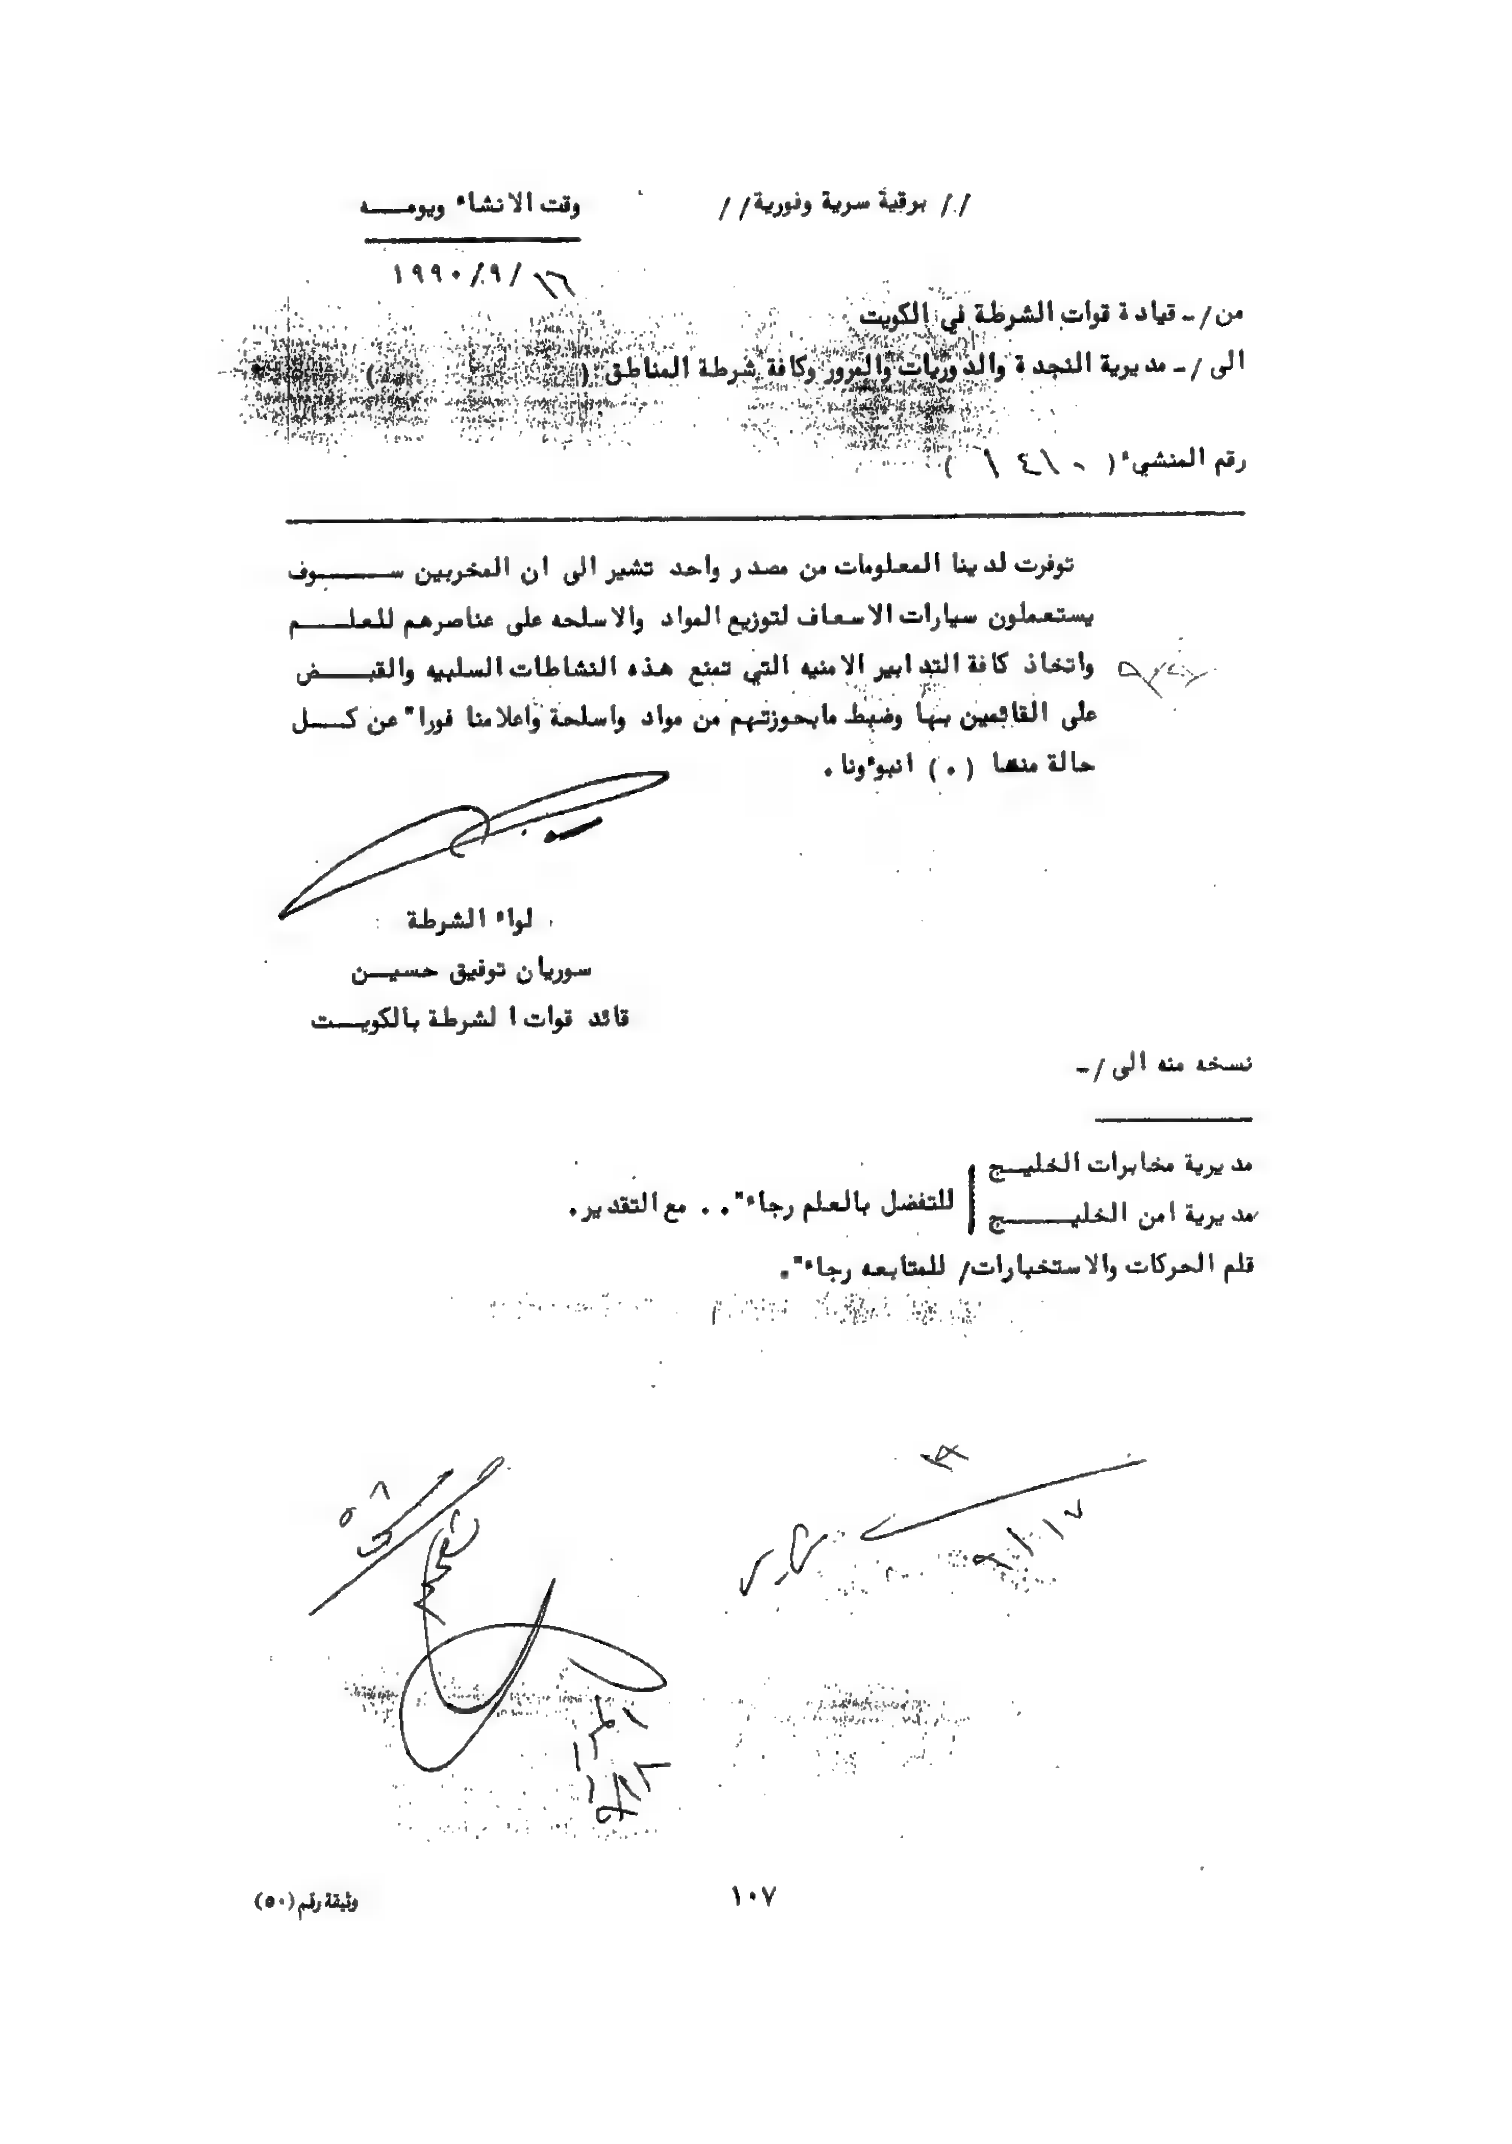 // برقية سرية وفورية //
وقت الانشاء ويومـــه
١٦/٩/١٩٩٠
من/- قيادة قوات الشرطة في الكويت
الى/- مديرية النجدة والدوريات والمرور وكافة شرطة المناطق (      )
رقم المنشيء ( ١٤١٠ )
توفرت لدينا المعلومات من مصدر واحد تشير الى ان المخربين ســـوف
يستعملون سيارات الاسعاف لتوزيع المواد والاسلحه على عناصرهم للعلـــم
واتخاذ كافة التدابير الامنيه التي تمنع هذه النشاطات السلبيه والقبـــض
على القائمين بها وضبط مابحوزتهم من مواد واسلحة واعلامنا فورا" عن كـــل
حالة منها (٠) انبوءونا .
لواء الشرطة
سوريان توفيق حسيـــن
قائد قوات الشرطة بالكويـــت
نسخه منه الى/-
مديرية مخابرات الخليـــج
للتفضل بالعلم رجاء" . . مع التقدير.
مديرية امن الخليـــج
قلم الحركات والاستخبارات/ للمتابعه رجاء" .
١٠٧
وثيقة رقم (٥٠)